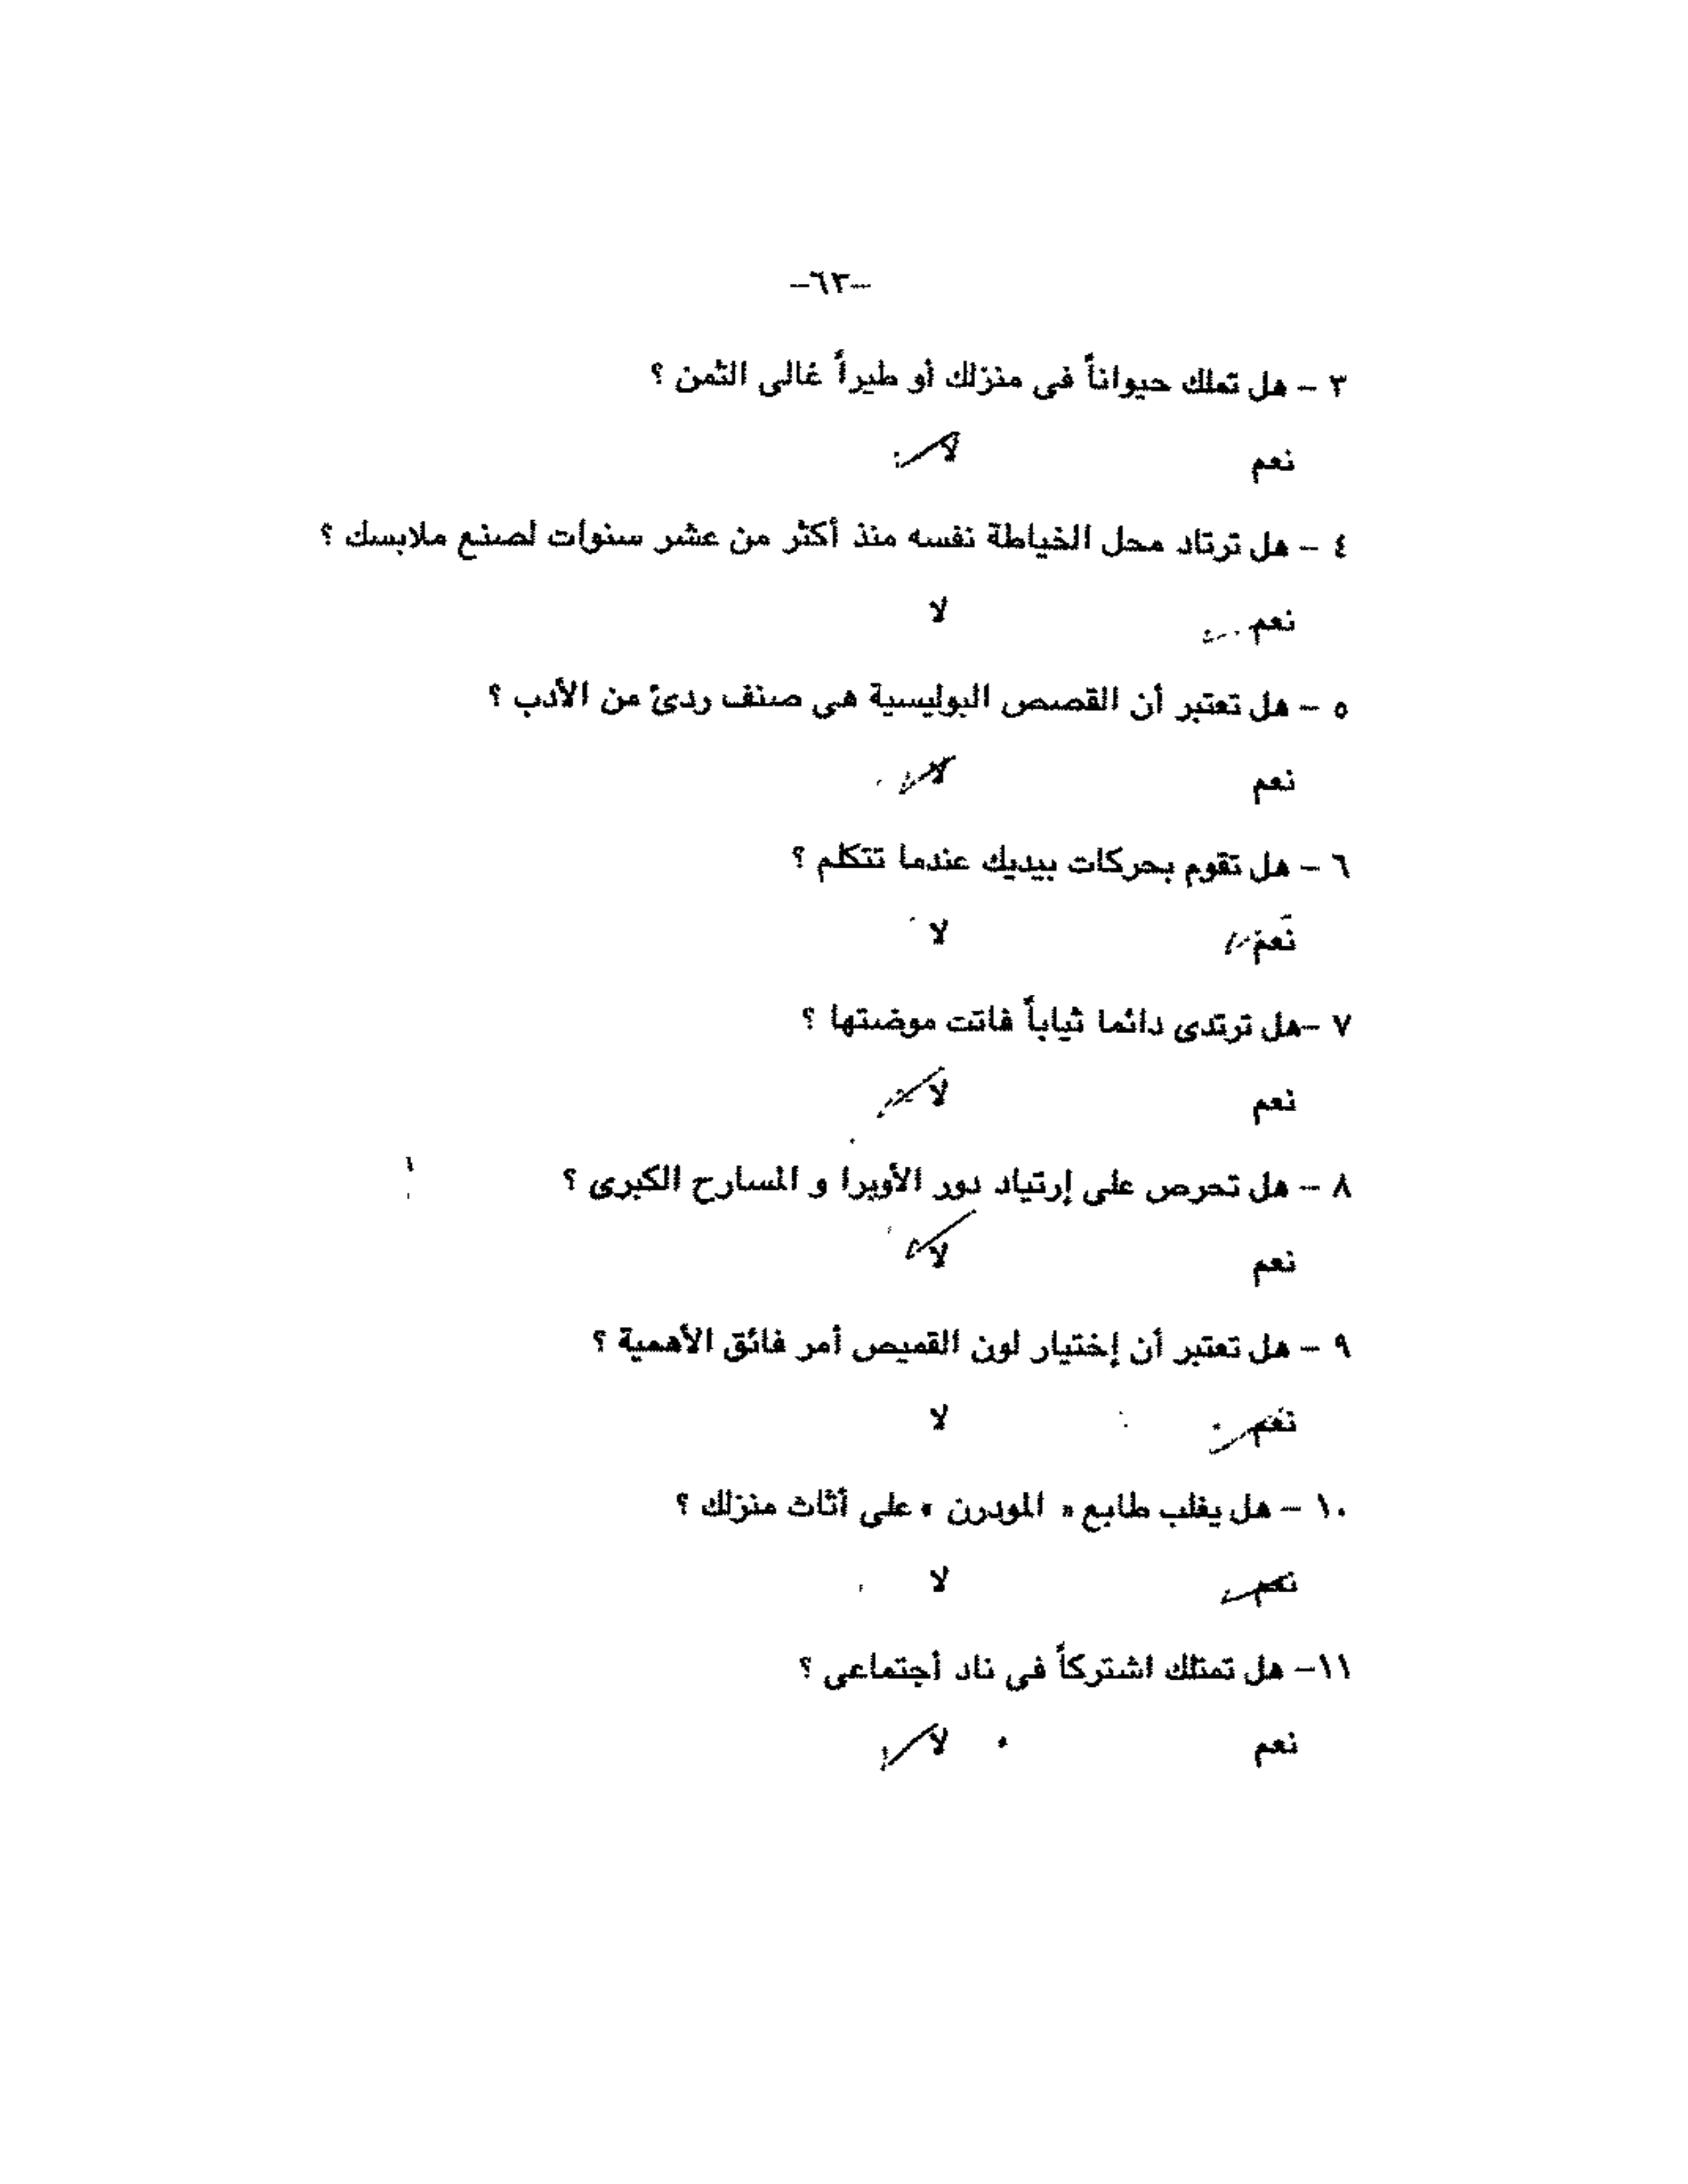 -٦٣-
٣ - هل تملك حيواناً فى منزلك أو طيراً غالى الثمن ؟
نعم لا
٤ - هل ترتاد محل الخياطة نفسه منذ أكثر من عشر سنوات لصنع ملابسك ؟
نعم لا
٥ - هل تعتبر أن القصص البوليسية هى صنف ردئ من الأدب ؟
نعم لا
٦ - هل تقوم بحركات بيديك عندما تتكلم ؟
نعم لا
٧ -هل ترتدى دائما ثياباً فاتت موضتها ؟
نعم لا
٨ - هل تحرص على إرتياد دور الأوبرا و المسارح الكبرى ؟
نعم لا
٩ - هل تعتبر أن إختيار لون القميص أمر فائق الأهمية ؟
نعم لا
١٠ - هل يغلب طابع « المودرن » على أثاث منزلك ؟
نعم لا
١١- هل تمتلك اشتركاً فى ناد أجتماعى ؟
نعم لا